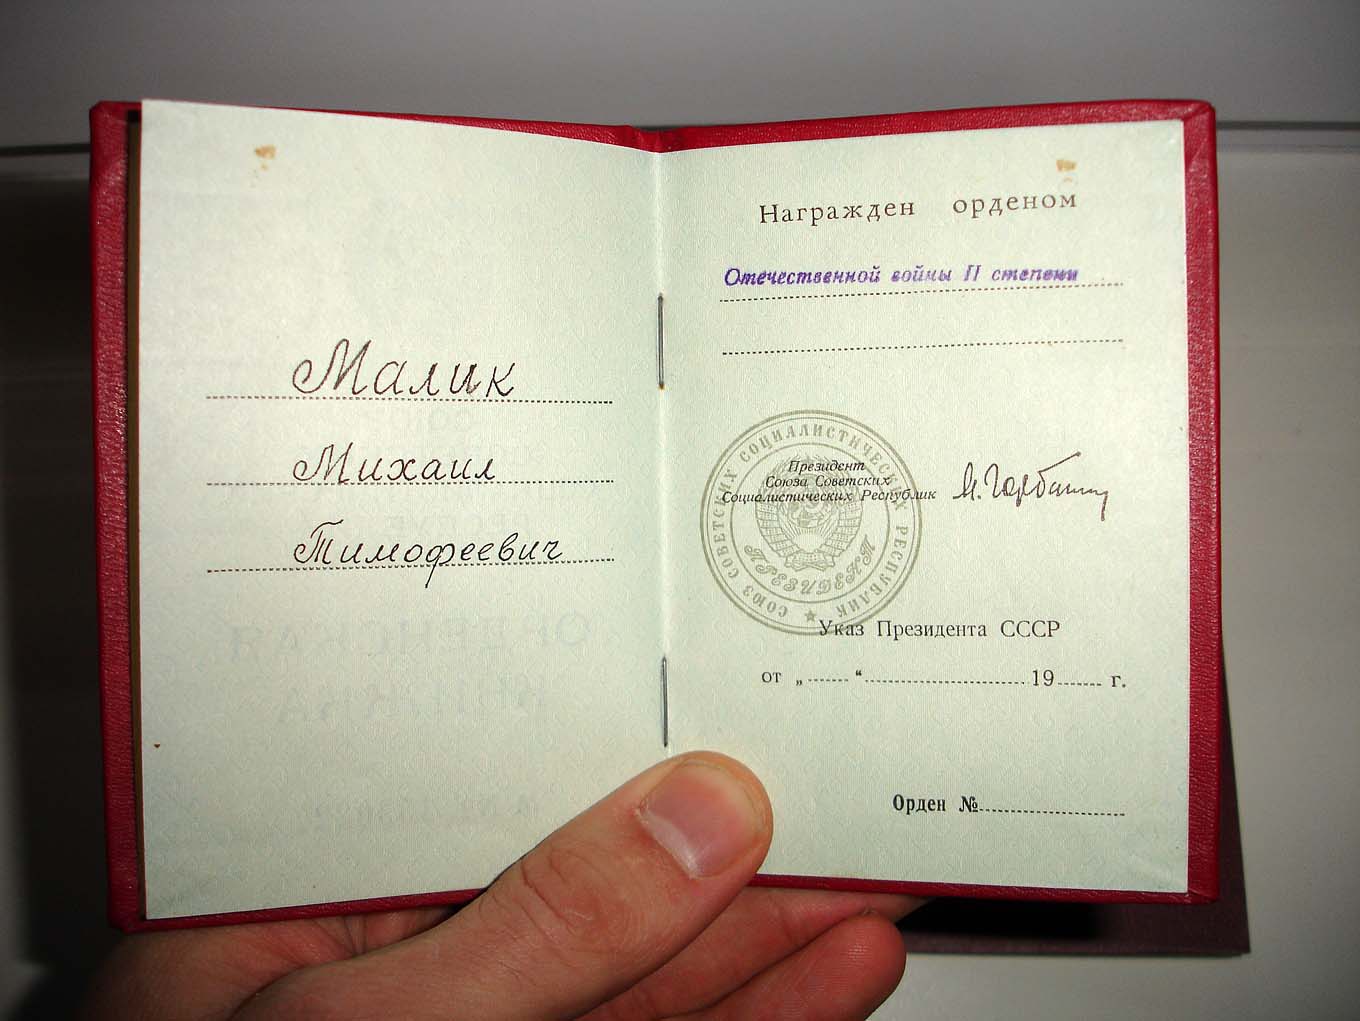 Малик
Михаил
Тимофеевич
Награжден орденом
Отечественной войны II степени
СОЮЗ СОВЕТСКИХ СОЦИАЛИСТИЧЕСКИХ РЕСПУБЛИК
ПРЕЗИДЕНТ
Президент
Союза Советских
Социалистических Республик
М. Горбачев
Указ Президента СССР
от „ “ 19 г.
Орден №